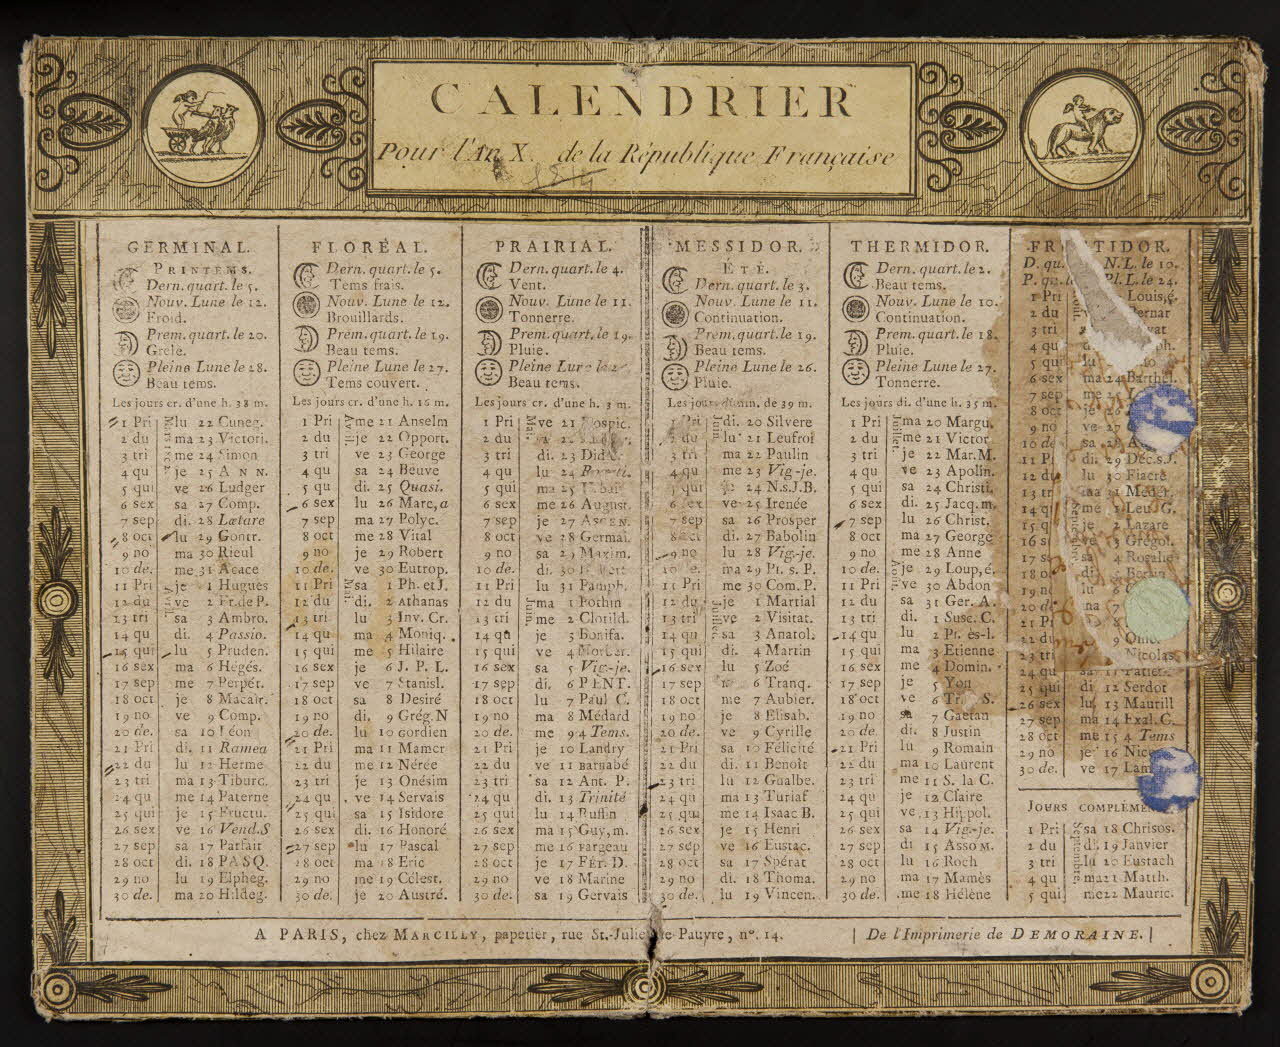 CALENDRIER
Pour l'An X. de la République Française
GERMINAL.
PRINTEMS.
Dern. quart. le 5.
Nouv. Lune le 12.
Froid.
Prem. quart. le 20.
Grêle.
Pleine Lune le 28.
Beau tems.
Les jours cr. d'une h. 38 m.
1 Pri lu 22 Cuneg.
2 du ma 23 Victori.
3 tri me 24 Simon
4 qu je 25 ANN.
5 qui ve 26 Ludger
6 sex sa 27 Comp.
7 sep di. 28 Lætare
8 oct lu 29 Gontr.
9 no ma 30 Rieul
10 de. me 31 Acace
11 Pri je 1 Hugues
12 du ve 2 Fr. de P.
13 tri sa 3 Ambro.
14 qu di. 4 Passio.
15 qui lu 5 Pruden.
16 sex ma 6 Hégés.
17 sep me 7 Perpét.
18 oct je 8 Macair.
19 no ve 9 Comp.
20 de. sa 10 Léon
21 Pri di. 11 Ramea
22 du lu 12 Herme
23 tri ma 13 Tiburc.
24 qu me 14 Paterne
25 qui je 15 Fructu.
26 sex ve 16 Vend.S
27 sep sa 17 Parfait
28 oct di. 18 PASQ.
29 no lu 19 Elphég.
30 de. ma 20 Hildeg.
FLORÉAL.
Dern. quart. le 5.
Tems frais.
Nouv. Lune le 12.
Brouillards.
Prem. quart. le 19.
Beau tems.
Pleine Lune le 27.
Tems couvert.
Les jours cr. d'une h. 16 m.
1 Pri me 21 Anselm
2 du je 22 Opport.
3 tri ve 23 George
4 qu sa 24 Beuve
5 qu di. 25 Quasi.
6 sex lu 26 Marc, a
7 sep ma 27 Polyc.
8 oct me 28 Vital
9 no je 29 Robert
10 de. ve 30 Eutrop.
11 Pri sa 1 Ph. et J.
12 du di. 2 Athanas
13 tri lu 3 Inv. Cr.
14 qu ma 4 Moniq.
15 qui me 5 Hilaire
16 sex je 6 J. P. L.
17 sep ve 7 Stanisl.
18 oct sa 8 Desiré
19 no di. 9 Grég. N
20 de. lu 10 Gordien
21 Pri ma 11 Mamer
22 du me 12 Nérée
23 tri je 13 Onésim
24 qu ve 14 Servais
25 qui sa 15 Isidore
26 sex di. 16 Honoré
27 sep lu 17 Pascal
28 oct ma 18 Eric
29 no me 19 Célest.
30 de. je 20 Austré.
PRAIRIAL.
Dern. quart. le 4.
Vent.
Nouv. Lune le 11.
Tonnerre.
Prem. quart. le 19.
Pluie.
Pleine Lune le
Beau tems.
Les jours cr. d'une h. 3 m.
1 Pri Mai. ve 21 Hospic.
2 du
3 tri di. 23 Did
4 qu lu 24
5 qui ma 25
6 sex me 26 August.
7 sep je 27 ASCEN.
8 oct ve 28 Germai.
9 no sa 29 Maxim.
10 de. di. 30
11 Pri lu 31 Pamph.
12 du Juin. ma 1 Pothin
13 tri me 2 Clotild.
14 qu je 3 Bonifa.
15 qui ve 4
16 sex sa 5 Vig.-je.
17 sep di. 6 PENT.
18 oct lu 7 Paul C.
19 no ma 8 Médard
20 de. me 9 4 Tems.
21 Pri je 10 Landry
22 du ve 11 BARNABÉ
23 tri sa 12 Ant. P.
24 qu di. 13 Trinité
25 qui lu 14 Ruffin
26 sex ma 15 Guy, m.
27 sep me 16 Fargeau
28 oct je 17 FÉT. D.
29 no ve 18 Marine
30 de. sa 19 Gervais
MESSIDOR.
ÉTÉ.
Dern. quart. le 3.
Nouv. Lune le 11.
Continuation.
Prem. quart. le 19.
Beau tems.
Pleine Lune le 26.
Pluie.
Les jours dimin. de 39 m.
Pri Juin. di. 20 Silvere
du lu 21 Leufroi
3 tri ma 22 Paulin
4 qu me 23 Vig-je.
5 qui je 24 N.s.J.B.
6 sex ve 25 Irenée
7 sep sa 26 Prosper
8 oct di. 27 Babolin
9 no lu 28 Vig.-je.
10 de. ma 29 Pi. s. P.
11 Pri me 30 Com. P.
12 du Juillet. je 1 Martial
13 tri ve 2 Visitat.
14 qu sa 3 Anatol.
15 qui di. 4 Martin
16 sex lu 5 Zoé
17 sep 6 Tranq.
18 oct me 7 Aubier.
19 no je 8 Elisab.
20 de. ve 9 Cyrille
21 Pri sa 10 Félicité
22 du di. 11 Benoît
23 tri lu 12 Gualbe.
24 qu ma 13 Turiaf
25 qui me 14 Isaac B.
26 sex je 15 Henri
27 sep ve 16 Eustac.
28 oct sa 17 Spérat
29 no di. 18 Thoma.
30 de. lu 19 Vincen.
THERMIDOR.
Dern. quart. le 2.
Beau tems.
Nouv. Lune le 10.
Continuation.
Prem. quart. le 18.
Pluie.
Pleine Lune le 27.
Tonnerre.
Les jours di. d'une h. 35 m.
1 Pri Juillet. ma 20 Margu.
2 du me 21 Victor
3 tri je 22 Mar. M.
4 qu ve 23 Apolin.
5 qui sa 24 Christi.
6 sex di. 25 Jacq. m.
7 sep lu 26 Christ.
8 oct ma 27 George
9 no me 28 Anne
10 de. je 29 Loup, é.
11 Pri ve 30 Abdon
12 du sa 31 Ger. A.
13 tri di. 1 Suse. C.
14 qu lu 2 Pr. ès-l.
15 qui ma 3 Etienne
16 sex me 4 Domin.
17 sep je 5 Yon
18 oct ve 6 Tr. S.
19 no sa 7 Gaetan
20 de di. 8 Justin
21 Pri lu 9 Romain
22 du ma 10 Laurent
23 tri me 11 S. la C.
24 qu je 12 Claire
25 qui ve 13 Hippol.
26 sex sa 14 Vig-je.
27 sep di 15 ASSOM.
28 oct lu 16 Roch
29 no ma 17 Mamès
30 de. me 18 Hélène
FR TIDOR.
D. qu. N. L. le 10.
P. qu. Pl. L. le 24.
1 Pri Louis, é.
2 du Bernar
3 tri
4 qu
5 qui lu
6 sex ma 24 Barthél.
7 sep me
8 oct je
9 no ve 27
10 de sa
11 P di. 29 Déc.s.J.
12 du lu 30 Fiacre
13 tri ma 31 Méder.
14 qu me 1 Leu G.
15 q je 2 Lazare
16 s ve 3 Grégoi.
17 s sa 4 Rosalie
18 o di. Bertin
19 n lu 6
20 d ma 7
21 P
22 du 9 Omer
23 tri Nicolas
24 qu sa 11 Patien
25 qui di 12 Serdot
26 sex lu, 13 Maurill
27 sep ma 14 Exal. C.
28 oct me 15 4 Tems
29 no je 16 Nic
30 de. ve 17 Lam
JOURS COMPLÉM
1 Pri Septembre. sa 18 Chrisos.
2 du di. 19 Janvier
3 tri lu 20 Eustach
4 qu ma 21 Matth.
5 qui me 22 Mauric.
A PARIS, chez MARCILLY, papetier, rue St.-Julien-le-Pauvre, n°. 14. | De l'Imprimerie de DEMORAINE. |